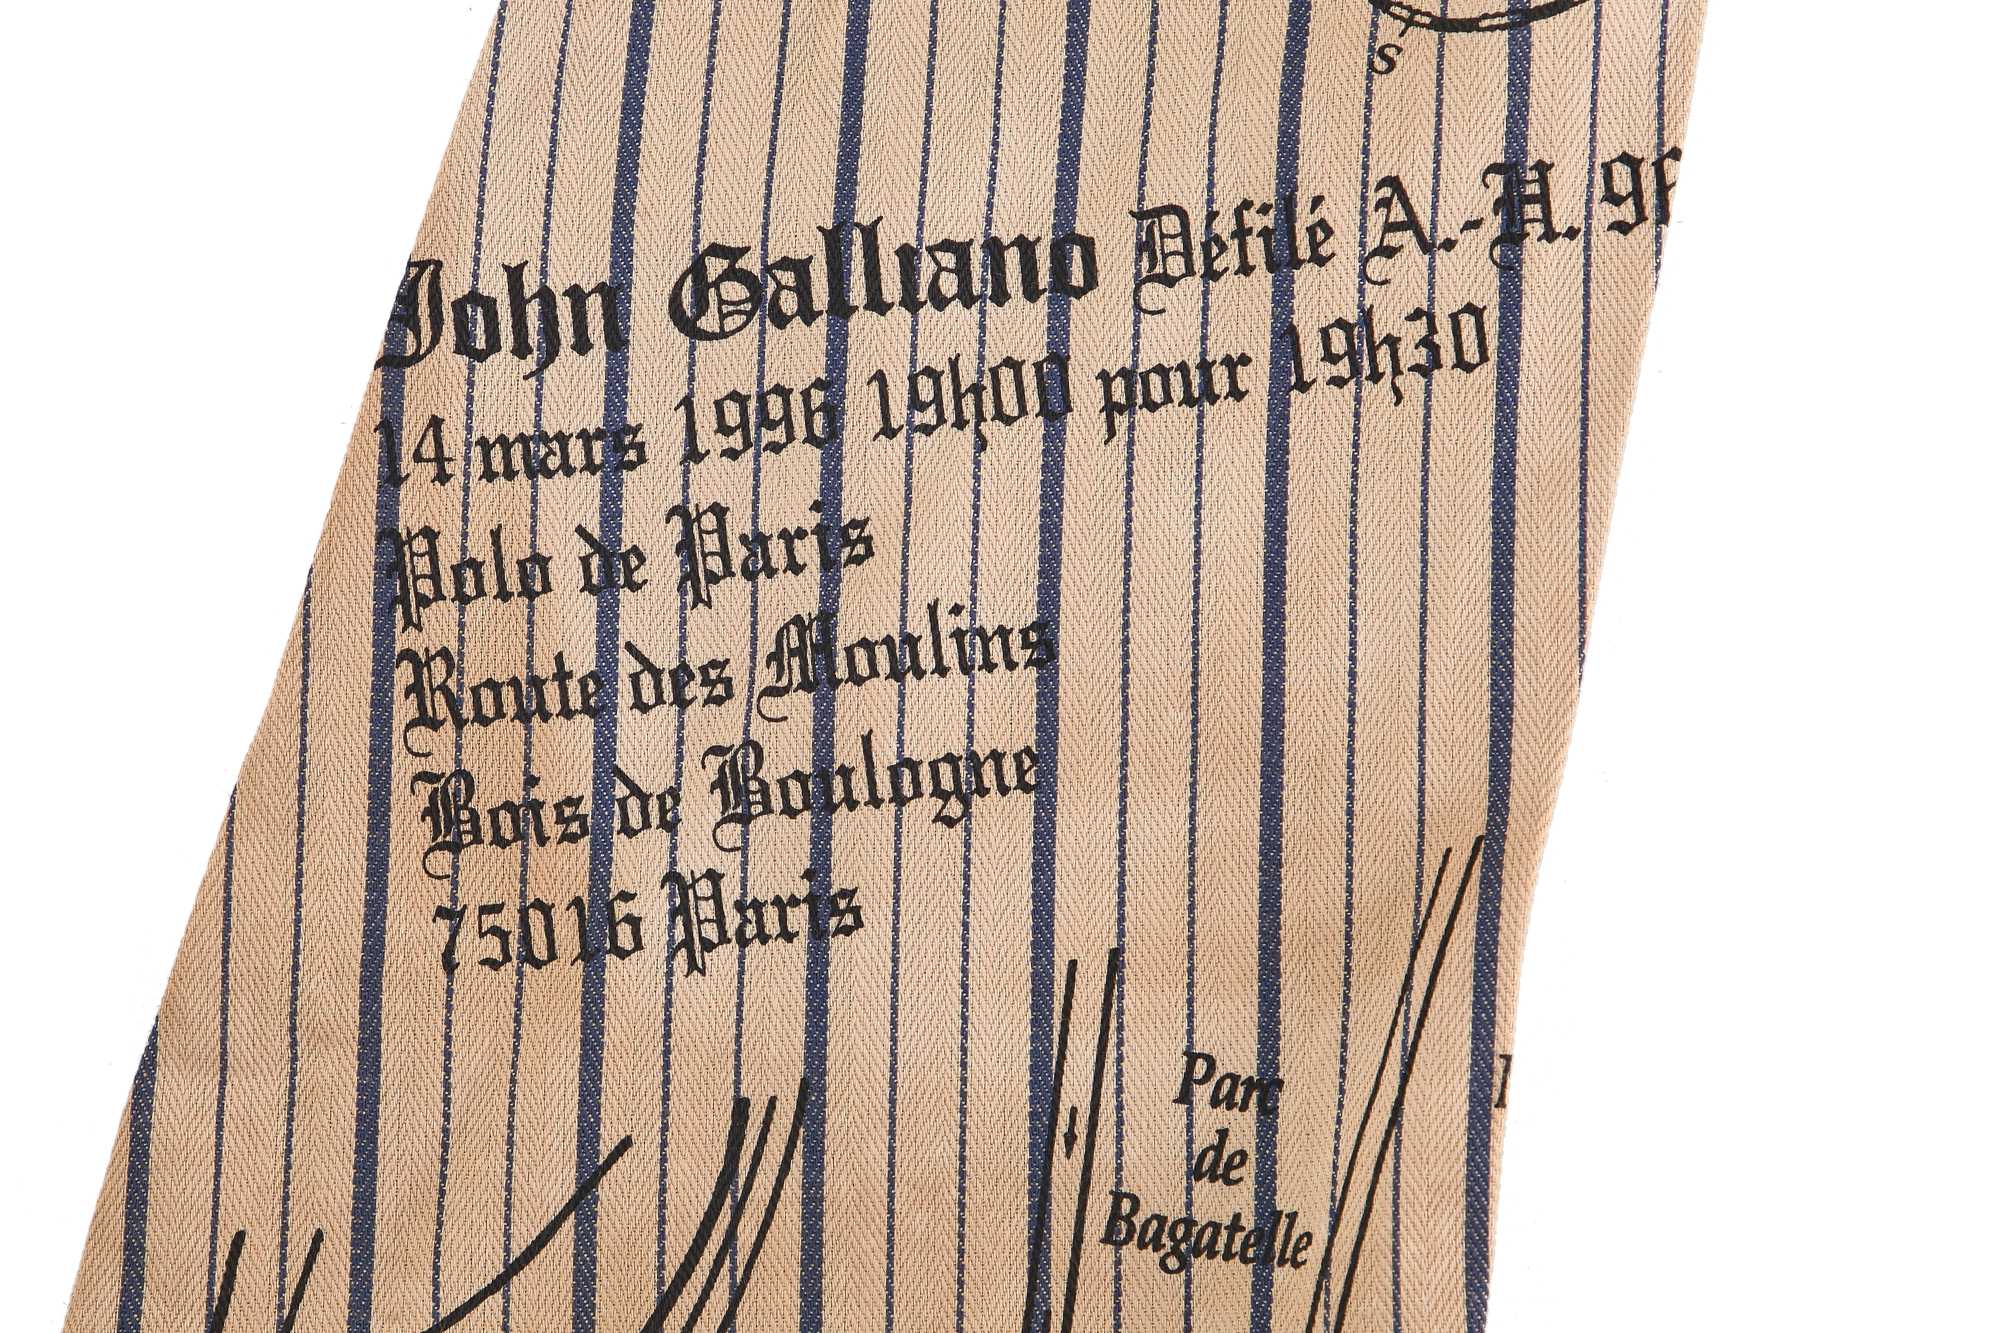 S
John Galliano Défilé A.-H. 96
14 mars 1996 19h00 pour 19h30
Polo de Paris
Route des Moulins
Bois de Boulogne
75016 Paris
Parc
de
Bagatelle